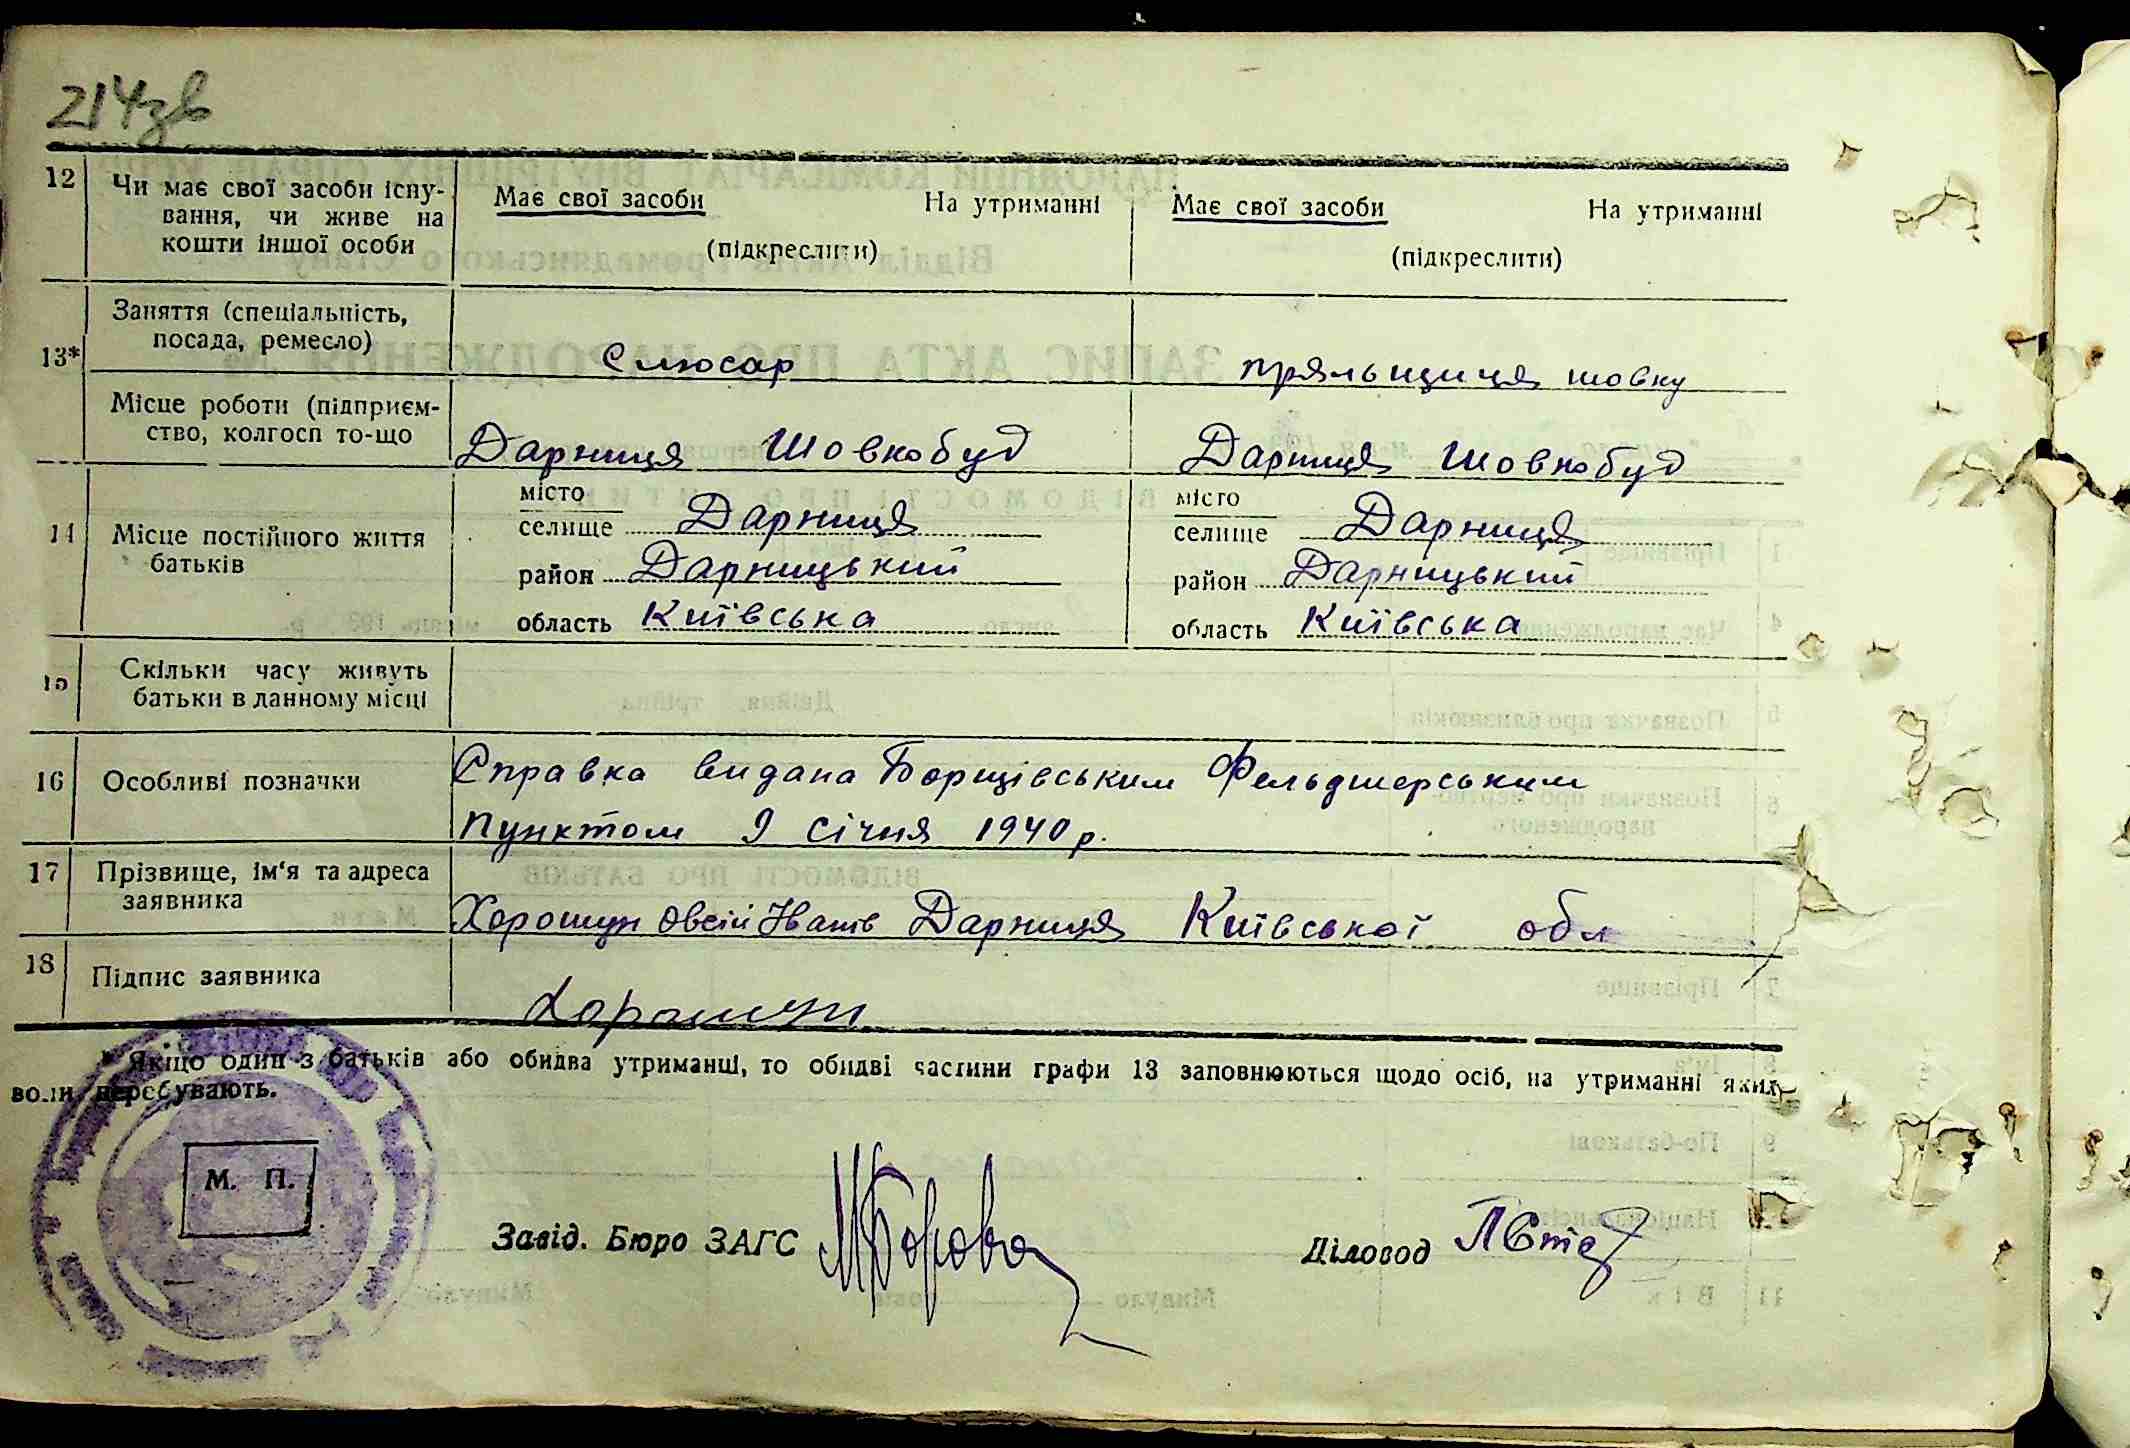 214зв
12 Чи має свої засоби існу- Має свої засоби На утриманні Має свої засоби На утриманні
вання, чи живе на
кошти іншої особи (підкреслити) (підкреслити)
13* Заняття (спеціальність,
посада, ремесло) Слюсар пряльщиця шовку
Місце роботи (підприєм-
ство, колгосп то-що Дарниця Шовкобуд Дарниця Шовкобуд
місто місто
14 Місце постійного життя селище Дарниця селище Дарниця
батьків район Дарницький район Дарницький
область Київська область Київська
15 Скільки часу живуть
батьки в данному місці
16 Особливі позначки Справка видана Борщівським Фельдшерським
Пунктом 9 січня 1940 р.
17 Прізвище, ім'я та адреса
заявника Хорошун Овсій Іванів Дарниця Київської обл
18 Підпис заявника Хорошун
* Якщо один з батьків або обидва утриманці, то обидві частини графи 13 заповнюються щодо осіб, на утриманні яких
вони перебувають.
М. П.
Завід. Бюро ЗАГС Діловод